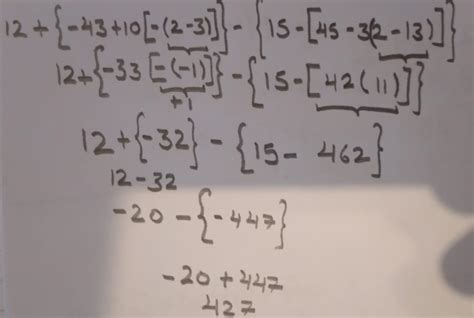 12 + {-43 + 10 [-(2-3)]} - {15 - [45 - 3(2-13)]}
12 + {-33 [-(-1)]} - {15 - [42 (11)]}
+1
12 + {-32} - {15 - 462}
12 - 32
-20 - {-447}
-20 + 447
427